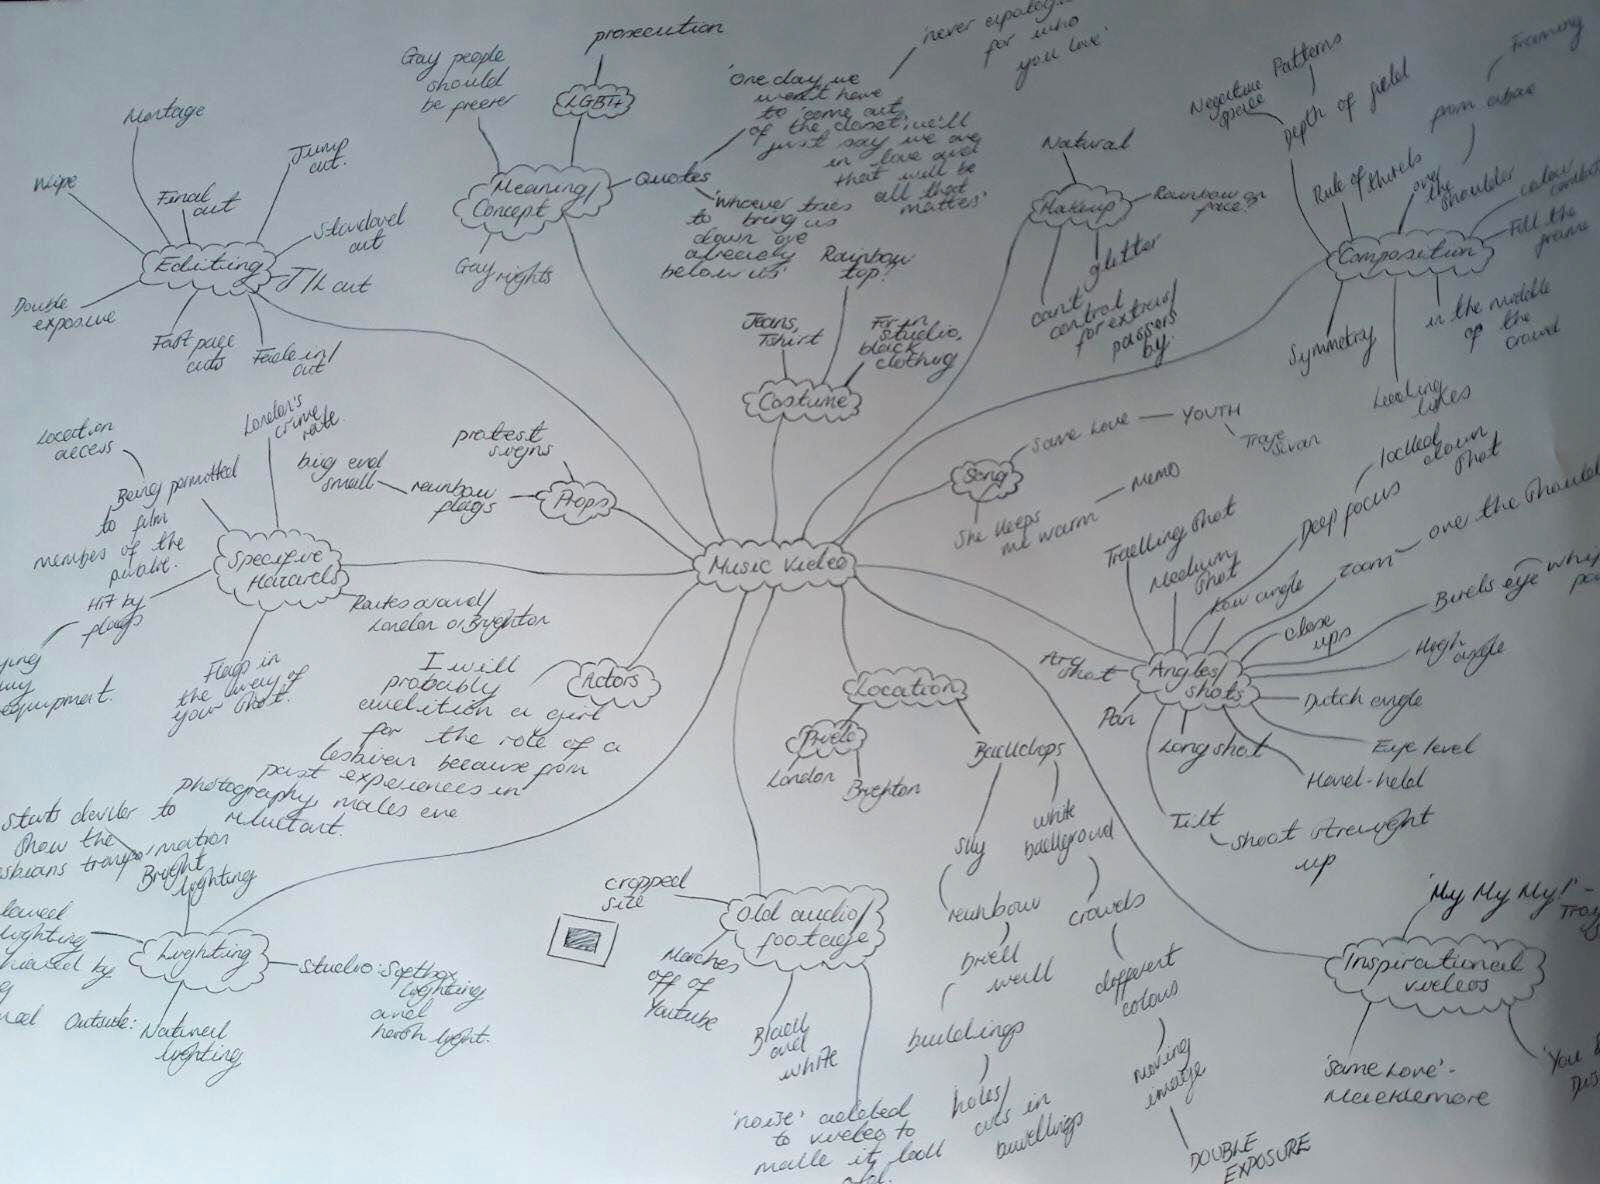 Music video
Editing
Montage
Wipe
Final
cut
Jump
cut.
Standard
cut
J/L cut
Double
exposure
Fast pace
cuts
Fade in/
out
Meaning/
Concept
Gay people
should
be freer
LGBT+
prosecution
Gay rights
Quotes
'One day we
won't have
to 'come out
of the closet', we'll
just say we are
in love and
that will be
all that
matters'
'never apologise
for who
you love'
'whoever tries
to bring us
down are
already
below us'
Costume
Jeans,
Tshirt
Rainbow
top?
For in
studio,
black
clothing
Makeup
Natural
Rainbow on
face?
glitter
can't
control
for extras/
passers
by.
Composition
Negative
space
Patterns
Depth of field
Rule of thirds
over
the
shoulder
from above
Framing
colour
Fill the
frame
in the middle
of the
crowd
Leading
lines
Symmetry
Song
Same Love
YOUTH
Troye
Sivan
She keeps
me warm
Props
protest
signs
rainbow
flags
big and
small
Specific
Hazards
Location
access
London's
crime
rate.
Being permitted
to film
members of the
public.
Hit by
flags
equipment.
Flags in
the way of
your shot.
Routes around/
London or Brighton
Actors
I will
probably
audition a girl
for the role of a
lesbian because from
past experiences in
photography, males are
reluctant.
Location
Pride
London
Brighton
Backdrops
Sky
rainbow
brick
wall
buildings
holes/
cuts in
buildings
white
background
crowds
different
colours
moving
image
DOUBLE
EXPOSURE
Angles/
shots
Travelling shot
Medium
shot
Low angle
Deep focus
locked
down
shot
Zoom
over the
close
ups
Birds eye
High
angle
Dutch angle
Eye level
Hand-held
Long shot
Tilt
shoot straight
up
Pan
Arc
shot
Inspirational
videos
'My My My!' -
'Same Love' -
Macklemore
Old audio/
footage
cropped
size
Marches
off of
Youtube
Black
and
white
'noise' added
to video to
make it look
old.
Lighting
Starts darker to
show the
Bright
lighting
lighting
Outside: Natural
lighting
Studio: Softbox
lighting
and
harsh light.